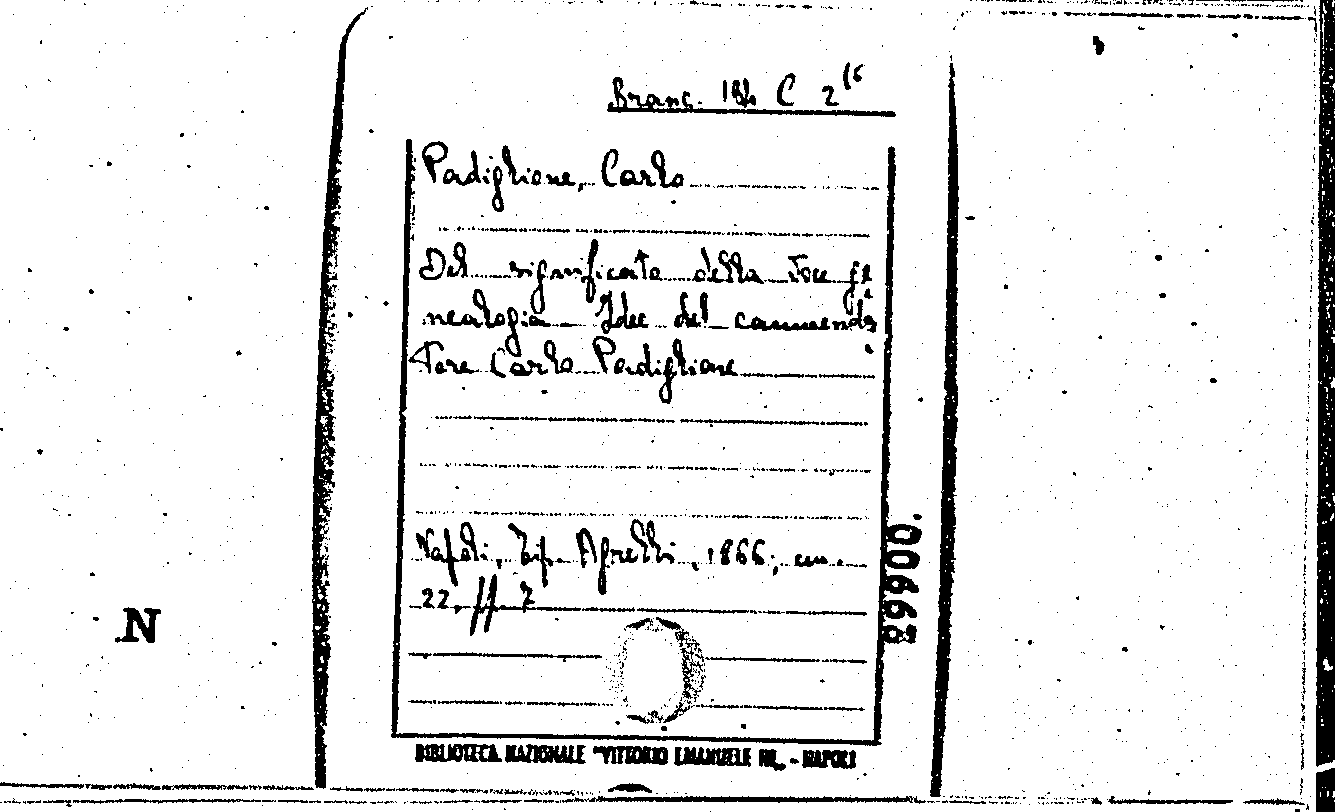 Branc. 134 C 2(6
Padiglione, Carlo
Del significato della voce ge
nealogia Idee del commenda
tore Carlo Padiglione
Napoli, Tip. Agrelli, 1866; cm.
22, pp. 7
89900.
N
BIBLIOTECA NAZIONALE "VITTORIO EMANUELE III„ - NAPOLI